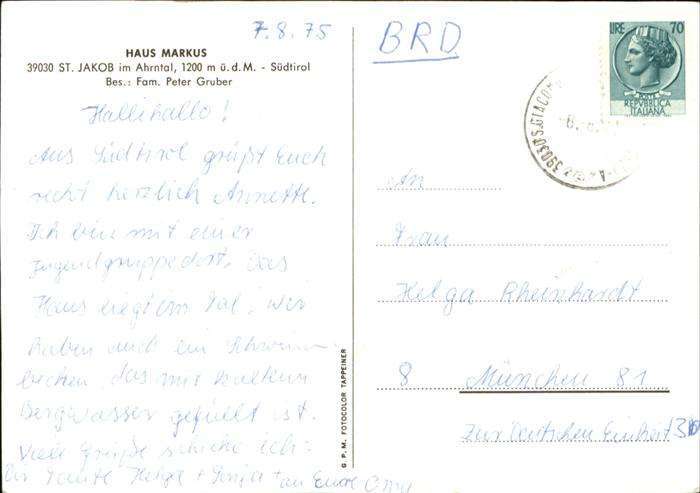 7.8.75
BRD
HAUS MARKUS
39030 ST. JAKOB im Ahrntal, 1200 m ü. d. M. - Südtirol
Bes.: Fam. Peter Gruber
Hallihallo!
Aus Südtirol grüßt Euch
recht herzlich Annette.
Ich bin mit einer
Jugendgruppe dort. Das
Haus liegt im Tal, wir
haben auch ein Schwimm-
becken, das mit kaltem
Bergwasser gefüllt ist.
Viele Grüße schicke ich
Dir Tante Helga + Sonja + an Eure Oma
G. P. M. FOTOCOLOR TAPPEINER
LIRE 70
POSTE
REPVBBLICA
ITALIANA
39030 S. GIACOMO
An
Frau
Helga Rheinhardt
8 München 81
Zur Deutschen Einheit